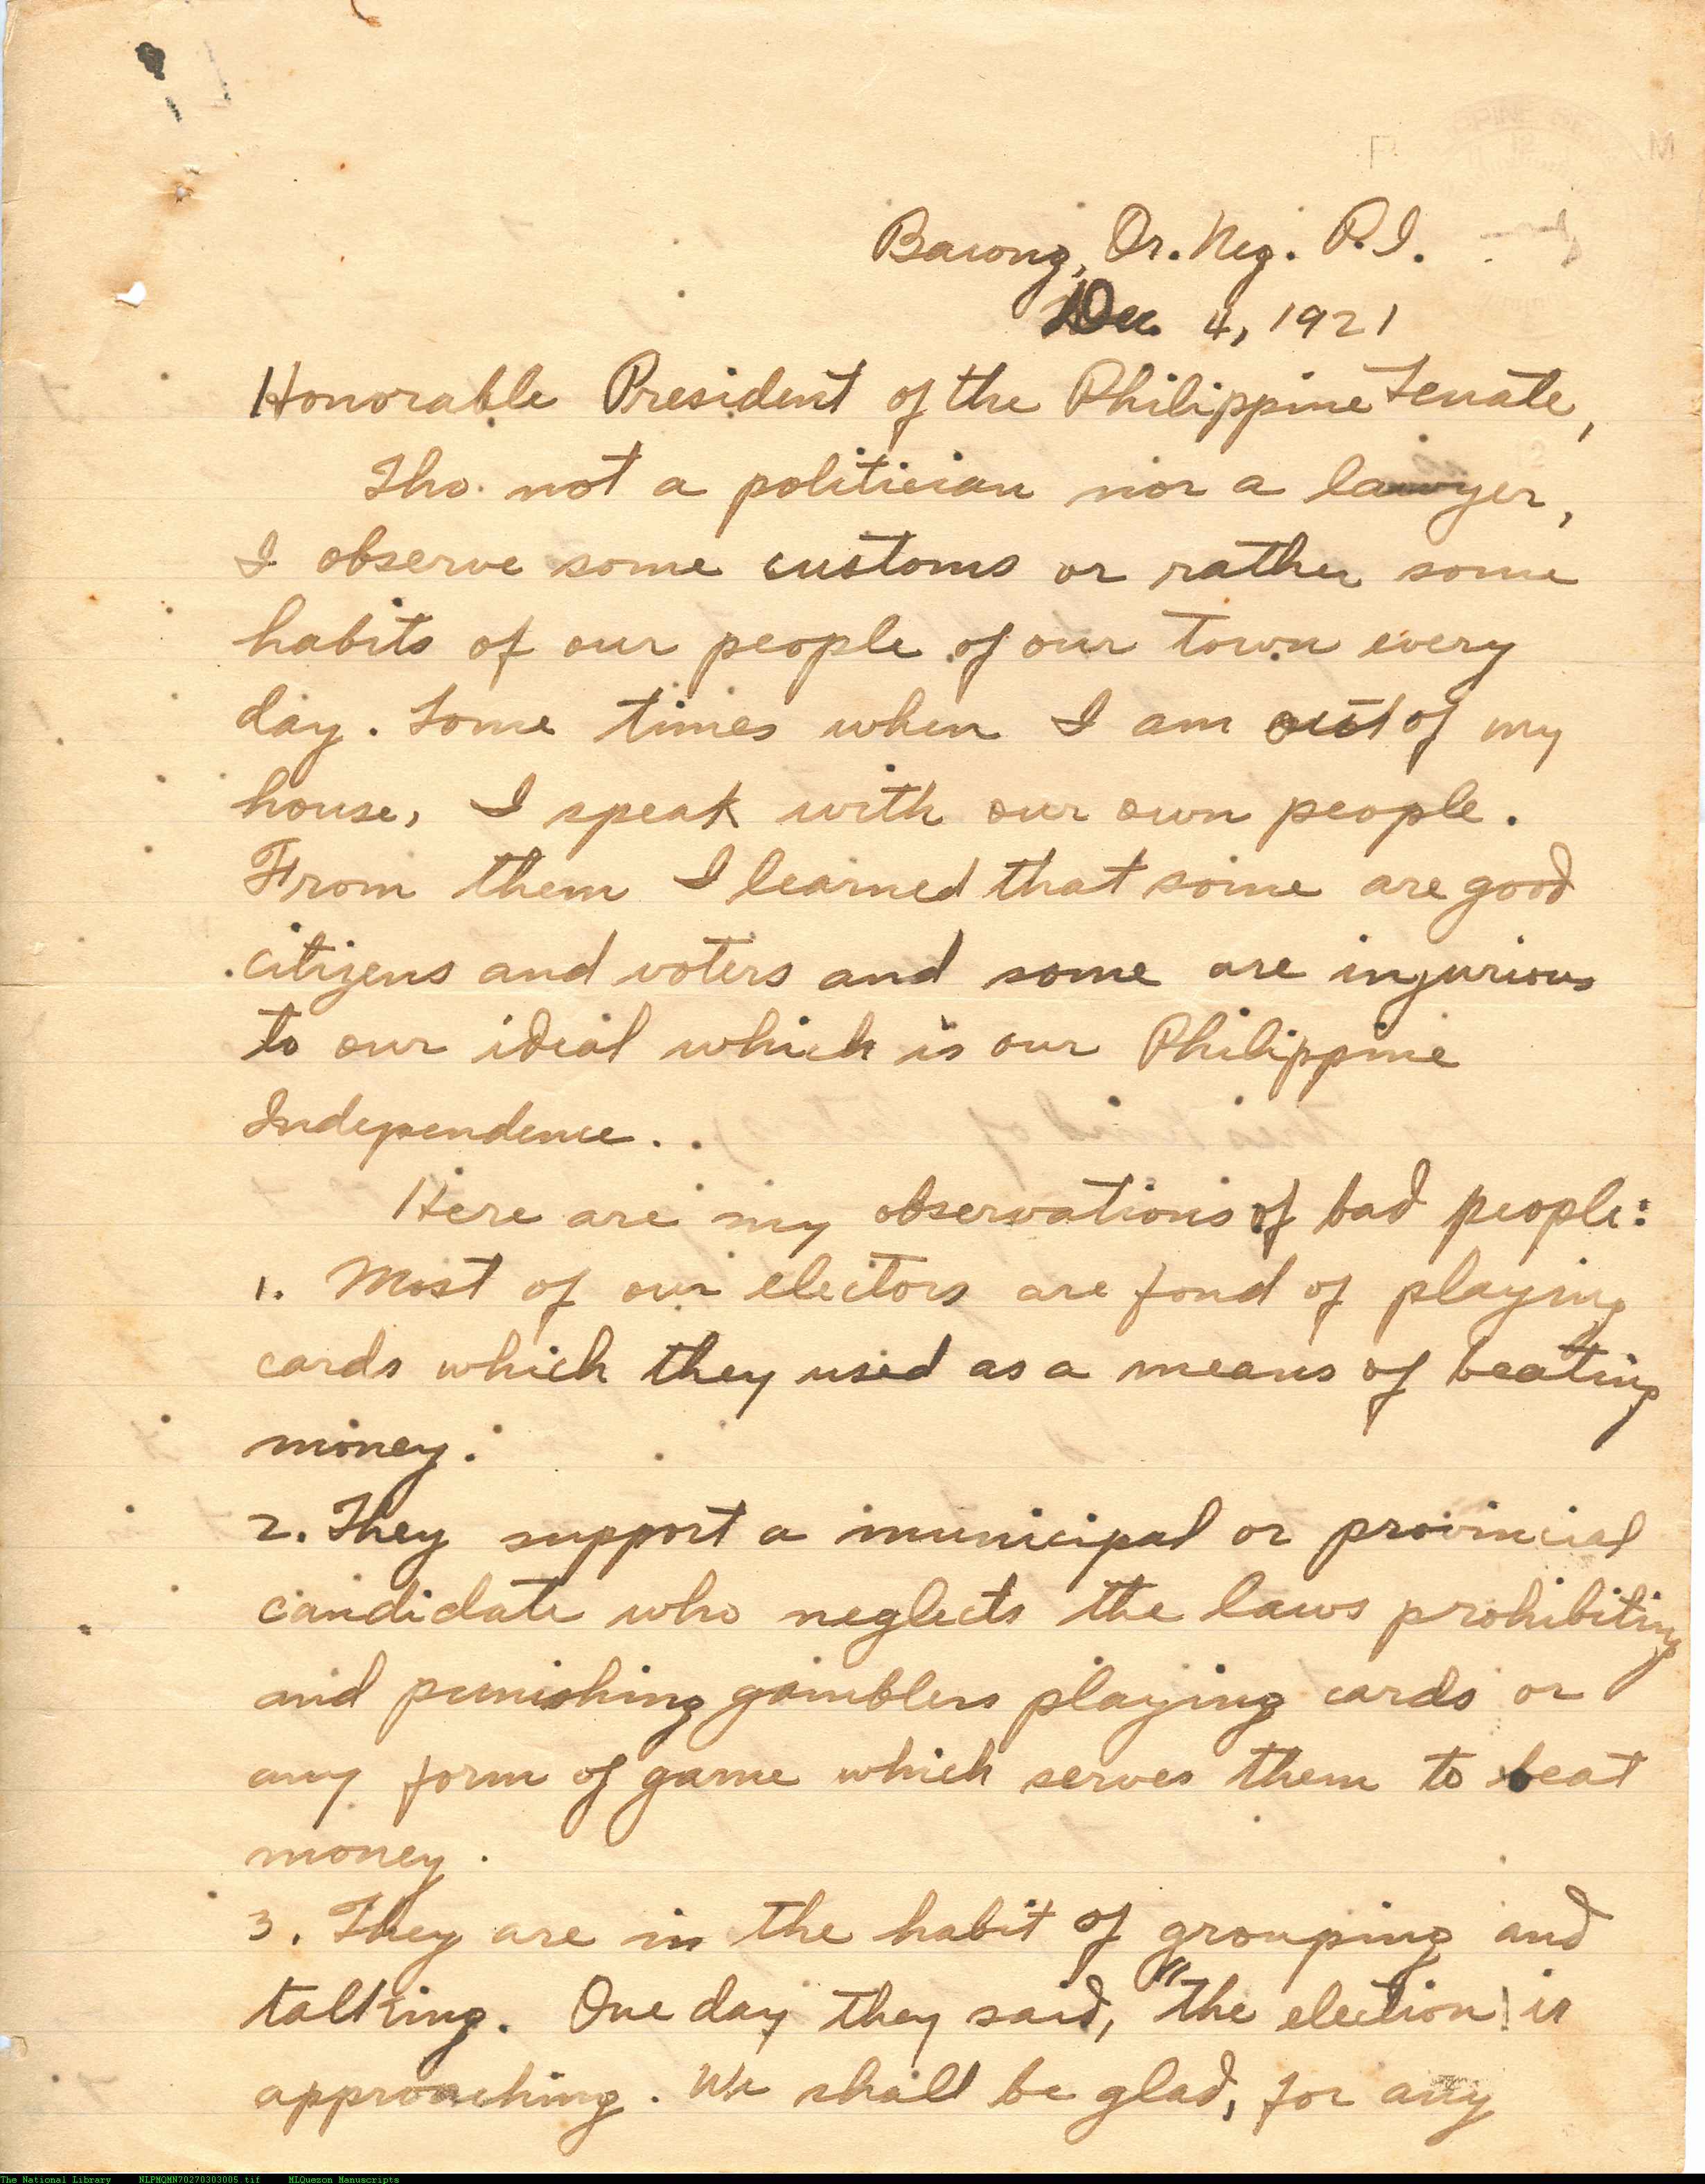 Bacong, Or. Neg. P.I.
Dec. 4, 1921
Honorable President of the Philippine Senate,
Tho. not a politician nor a lawyer,
I observe some customs or rather some
habits of our people of our town every
day. Some times when I am out of my
house, I speak with our own people.
From them I learned that some are good
citizens and voters and some are injurious
to our ideal which is our Philippine
Independence.
Here are my observations of bad people:
1. Most of our electors are fond of playing
cards which they used as a means of beating
money.
2. They support a municipal or provincial
candidate who neglects the laws prohibiting
and punishing gamblers playing cards or
any form of game which serves them to beat
money.
3. They are in the habit of grouping and
talking. One day they said, "the election is
approaching. We shall be glad, for any
The National Library NLPMQMN70270303005.tif MLQuezon Manuscripts